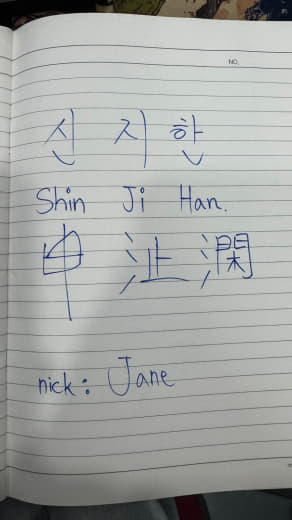 NO.
신 지 한
Shin Ji Han.
申 沚 澖
nick: Jane